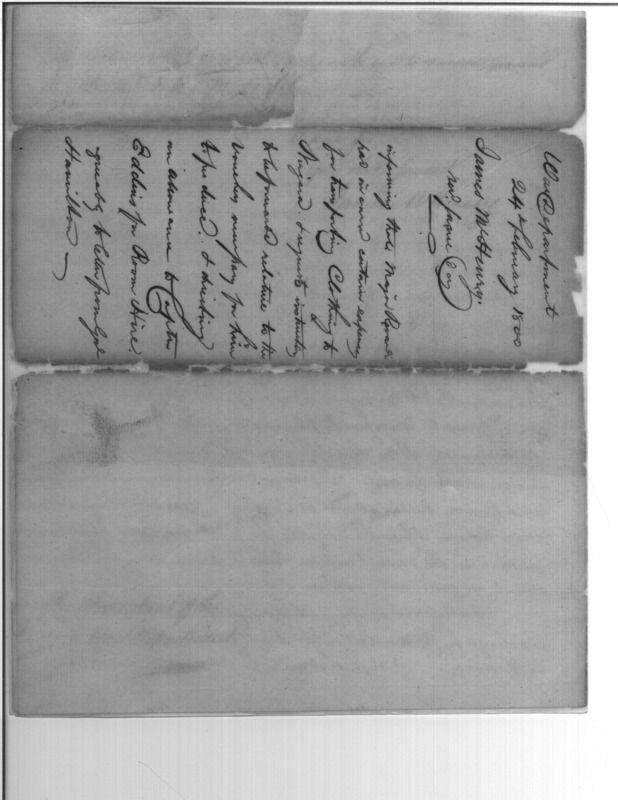 War Department
24th February 1800
James McHenry.
recd. same day
informing that Major Rivardi
had incurred certain expenses
for transporting Clothing to
Niagara. & requests instruction
to be forwarded relative to the
vouchers necessary for him
to produce. & directing
an allowance to Captn
Eddins for Room Hire.
agreeably to letter from Genl
Hamilton